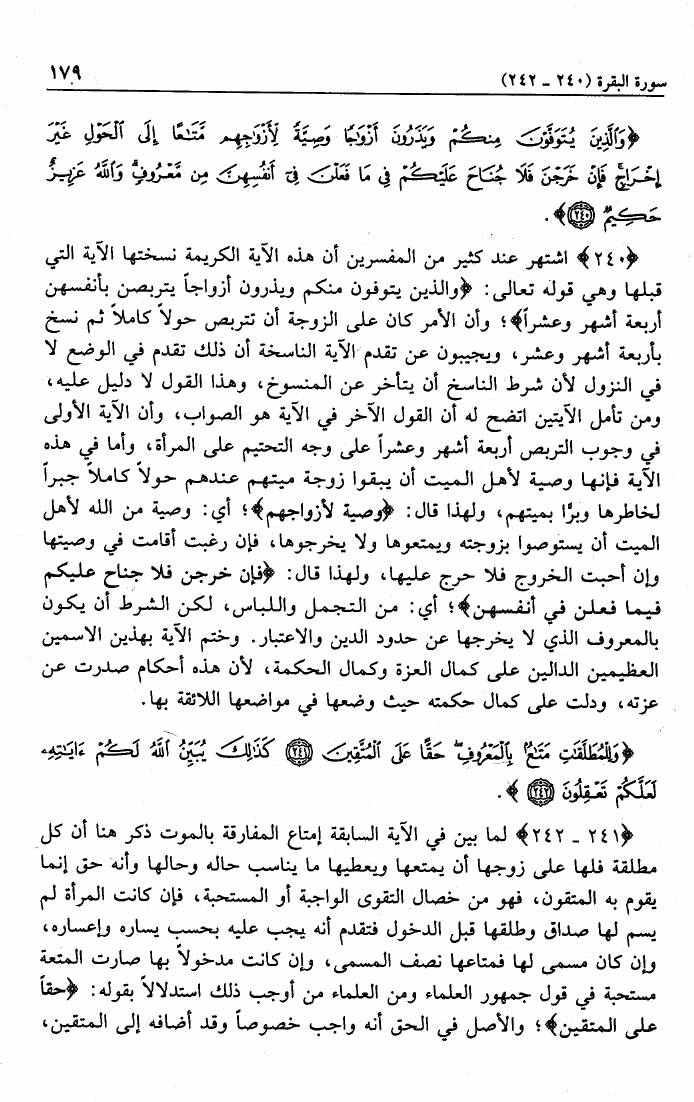 سورة البقرة (٢٤٠ - ٢٤٢)
١٧٩
﴿وَالَّذِينَ يُتَوَفَّوْنَ مِنكُمْ وَيَذَرُونَ أَزْوَاجًا وَصِيَّةً لِّأَزْوَاجِهِم مَّتَاعًا إِلَى الْحَوْلِ غَيْرَ
إِخْرَاجٍ فَإِنْ خَرَجْنَ فَلَا جُنَاحَ عَلَيْكُمْ فِي مَا فَعَلْنَ فِي أَنفُسِهِنَّ مِن مَّعْرُوفٍ وَاللَّهُ عَزِيزٌ
حَكِيمٌ ﴿٢٤٠﴾﴾.
﴿٢٤٠﴾ اشتهر عند كثير من المفسرين أن هذه الآية الكريمة نسختها الآية التي
قبلها وهي قوله تعالى: ﴿والذين يتوفون منكم ويذرون أزواجاً يتربصن بأنفسهن
أربعة أشهر وعشراً﴾؛ وأن الأمر كان على الزوجة أن تتربص حولاً كاملاً ثم نسخ
بأربعة أشهر وعشر، ويجيبون عن تقدم الآية الناسخة أن ذلك تقدم في الوضع لا
في النزول لأن شرط الناسخ أن يتأخر عن المنسوخ، وهذا القول لا دليل عليه،
ومن تأمل الآيتين اتضح له أن القول الآخر في الآية هو الصواب، وأن الآية الأولى
في وجوب التربص أربعة أشهر وعشراً على وجه التحتيم على المرأة، وأما في هذه
الآية فإنها وصية لأهل الميت أن يبقوا زوجة ميتهم عندهم حولاً كاملاً جبراً
لخاطرها وبرًّا بميتهم، ولهذا قال: ﴿وصية لأزواجهم﴾؛ أي: وصية من الله لأهل
الميت أن يستوصوا بزوجته ويمتعوها ولا يخرجوها، فإن رغبت أقامت في وصيتها
وإن أحبت الخروج فلا حرج عليها، ولهذا قال: ﴿فإن خرجن فلا جناح عليكم
فيما فعلن في أنفسهن﴾؛ أي: من التجمل واللباس، لكن الشرط أن يكون
بالمعروف الذي لا يخرجها عن حدود الدين والاعتبار. وختم الآية بهذين الاسمين
العظيمين الدالين على كمال العزة وكمال الحكمة، لأن هذه أحكام صدرت عن
عزته، ودلت على كمال حكمته حيث وضعها في مواضعها اللائقة بها.
﴿وَلِلْمُطَلَّقَاتِ مَتَاعٌ بِالْمَعْرُوفِ حَقًّا عَلَى الْمُتَّقِينَ ﴿٢٤١﴾ كَذَلِكَ يُبَيِّنُ اللَّهُ لَكُمْ ءَايَاتِهِ
لَعَلَّكُمْ تَعْقِلُونَ ﴿٢٤٢﴾﴾.
﴿٢٤١ - ٢٤٢﴾ لما بين في الآية السابقة إمتاع المفارقة بالموت ذكر هنا أن كل
مطلقة فلها على زوجها أن يمتعها ويعطيها ما يناسب حاله وحالها وأنه حق إنما
يقوم به المتقون، فهو من خصال التقوى الواجبة أو المستحبة، فإن كانت المرأة لم
يسم لها صداق وطلقها قبل الدخول فتقدم أنه يجب عليه بحسب يساره وإعساره،
وإن كان مسمى لها فمتاعها نصف المسمى، وإن كانت مدخولاً بها صارت المتعة
مستحبة في قول جمهور العلماء ومن العلماء من أوجب ذلك استدلالاً بقوله: ﴿حقاً
على المتقين﴾؛ والأصل في الحق أنه واجب خصوصاً وقد أضافه إلى المتقين،